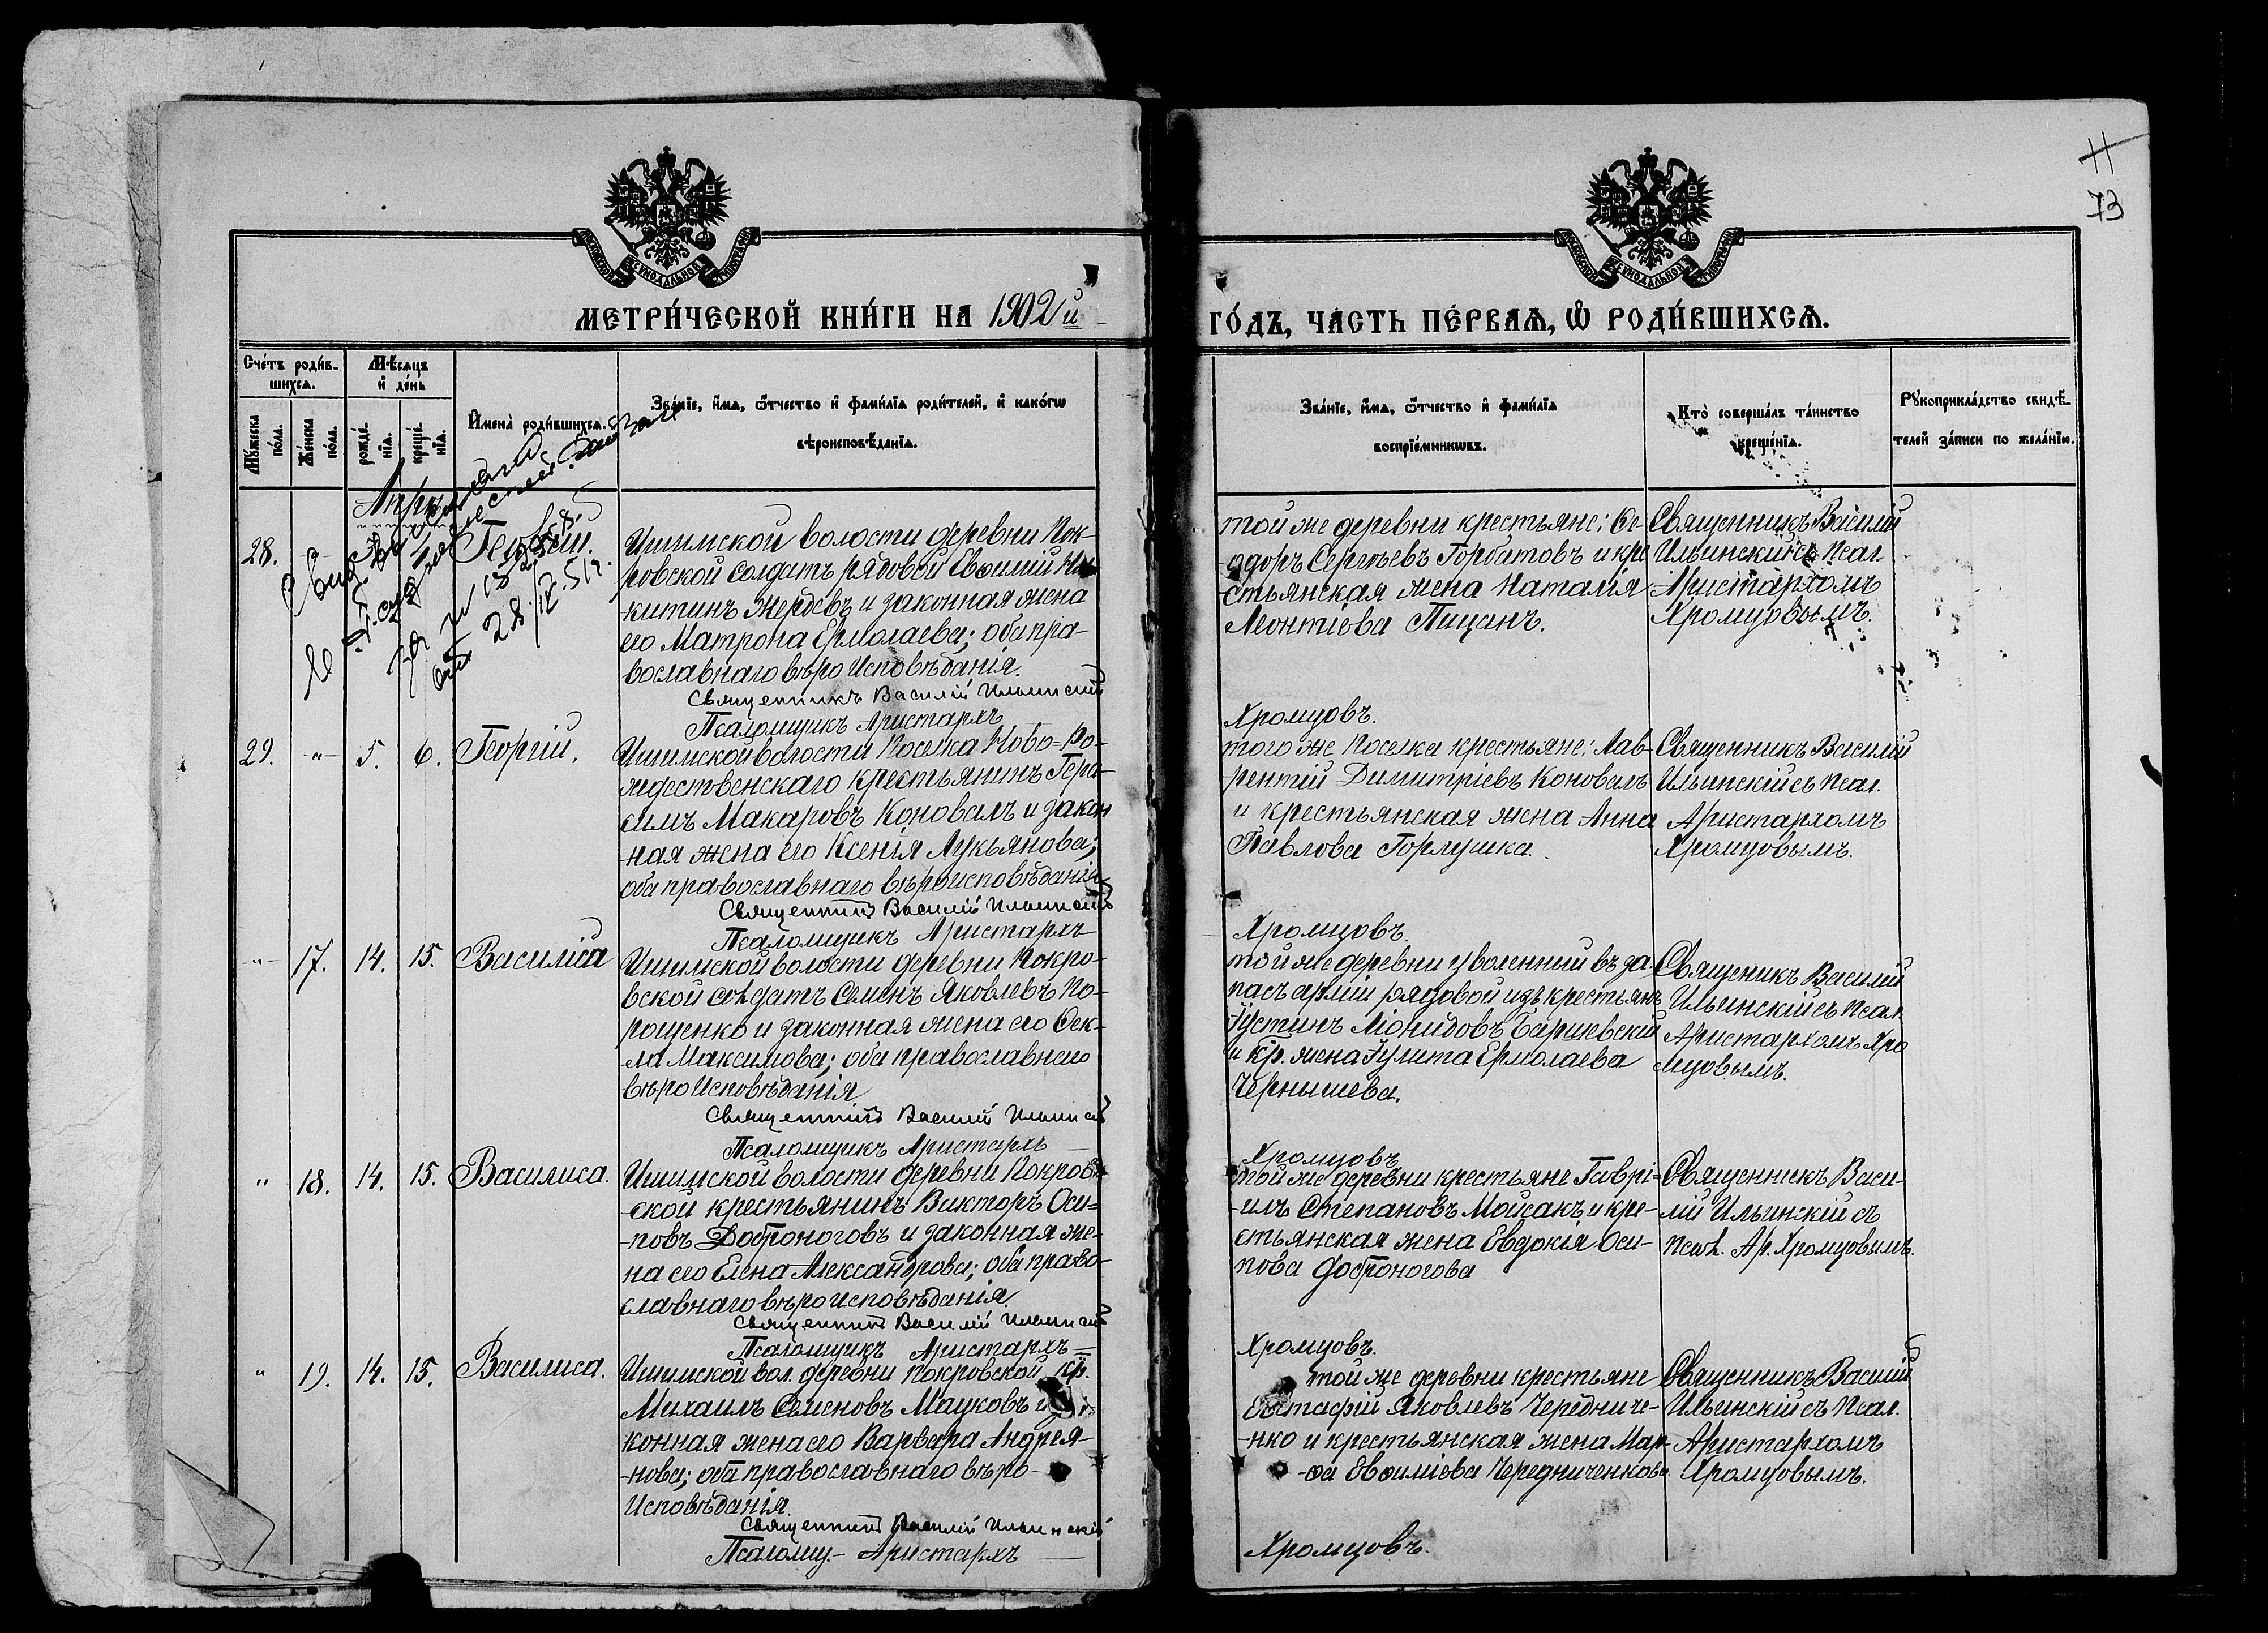 11
73
МОСКОВСКОЙ СѴНОДАЛЬНОЙ ТѴПОГРАФІИ
МОСКОВСКОЙ СѴНОДАЛЬНОЙ ТѴПОГРАФІИ
МЕТРИ́ЧЕСКОЙ КНИ́ГИ НА 1902й
ГО́ДЪ, ЧА́СТЬ ПЕ́РВАѦ, Ѡ҆ РОДИ́ВШИХСѦ.
Сче́тъ роди́в-
шихсѧ.
Мѣ́сѧцъ
и҆ де́нь
Мꙋ́жеска
по́ла.
Же́нска
по́ла.
рожде́-
нїѧ.
креще́-
нїѧ.
И҆мена̀ роди́вшихсѧ.
Зва́нїе, и҆́мѧ, ѻ҆́тчество и҆ фами́лїѧ роди́телей, и҆ како́гѡ
вѣроисповѣ́данїѧ.
Зва́нїе, и҆́мѧ, ѻ҆́тчество и҆ фами́лїѧ
воспрїе́мникѡвъ.
Кто̀ соверша́лъ та́инство
креще́нїѧ.
Рꙋкоприкла́дство свидѣ́-
телей за́писи по жела́нїю.
28.
Георгій.
Ишимской волости деревни Пок-
ровской солдатъ рядовой Евѳимій Ни-
китинъ Жердевъ и законная жена
его Матрона Ермолаева; оба пра-
вославнаго вѣроисповѣданія.
Священникъ Василій Ильинскій
Псаломщикъ Аристархъ
той же деревни крестьяне: Ѳе-
одоръ Сергѣевъ Горбатовъ и кре
стьянская жена Наталія
Леонтіева Пицанъ.
Хромцовъ.
Священникъ Василій
Ильинскій съ Псал.
Аристархомъ
Хромцовымъ.
29. -"- 5. 6. Георгій.
Ишимской волости Поселка Ново-Ро-
ждественскаго крестьянинъ Гера-
симъ Макаровъ Коновалъ и закон
ная жена его Ксенія Лукьянова;
оба православнаго вѣроисповѣданія
Священникъ Василій Ильинскій
Псаломщикъ Аристархъ
того же Поселка крестьяне: Лав-
рентій Димитріевъ Коновалъ
и крестьянская жена Анна
Павлова Горлушка.
Хромцовъ.
Священникъ Василій
Ильинскій съ Псал.
Аристархомъ
Хромцовымъ.
-"- 17. 14. 15. Василиса
Ишимской волости деревни Покро-
вской солдатъ Семенъ Яковлевъ По-
рощенко и законная жена его Ѳек-
ла Максимова; оба православнаго
вѣроисповѣданія
Священникъ Василій Ильинскій
Псаломщикъ Аристархъ
той же деревни уволенный въ за-
пасъ арміи рядовой изъ крестьянъ
Іустинъ Ліонидовъ Баршевскій
и кр. жена Іулита Ермолаева
Чернышева.
Хромцовъ
Священикъ Василій
Ильинскій съ Псал.
Аристархомъ Хро
мцовымъ.
" 18. 14. 15. Василиса.
Ишимской волости деревни Покров-
ской крестьянинъ Викторъ Оси-
повъ Доброноговъ и законная же-
на его Елена Александрова; оба право-
славнаго вѣроисповѣданія.
Священникъ Василій Ильинскій
Псаломщикъ Аристархъ =
той же деревни крестьяне Гаврі-
илъ Степановъ Мойсакъ и кре-
стьянская жена Евдокія Оси-
пова Доброногова
Хромцовъ.
Священникъ Васи-
лій Ильинскій съ
Псал. Ар. Хромцовымъ.
" 19. 14. 15. Василиса.
Ишимской вол. деревни Покровской кр.
Михаилъ Семеновъ Мацковъ и за-
конная жена его Варвара Андрея-
нова; оба православнаго вѣро-
исповѣданія.
Священникъ Василій Ильинскій
Псаломщ- Аристархъ
той же деревни крестьяне
Евстафій Яковлевъ Чередниче-
-нко и крестьянская жена Мар-
-ѳа Евѳиміева Чередниченкова
Хромцовъ.
Священникъ Василій
Ильинскій съ Псал.
Аристархомъ
Хромцовымъ.